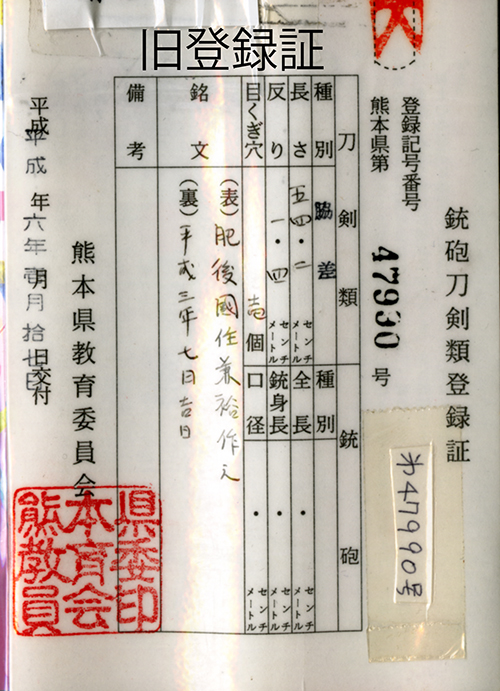 旧登録証
銃砲刀剣類登録証
登録記号番号
熊本県第 47990 号
才47990号
刀剣類
種別 脇差
長さ 五四・二 センチメートル
反り 一・四 センチメートル
目くぎ穴 壱個
銃砲
種別
全長 ・ センチメートル
銃身長 ・ センチメートル
口径 ・ センチメートル
銘文
(表)肥後國住兼裕作之
(裏)平成三年七月吉日
備考
平成六年壱月拾七日交付
熊本県教育委員会
熊本県教育委員会印